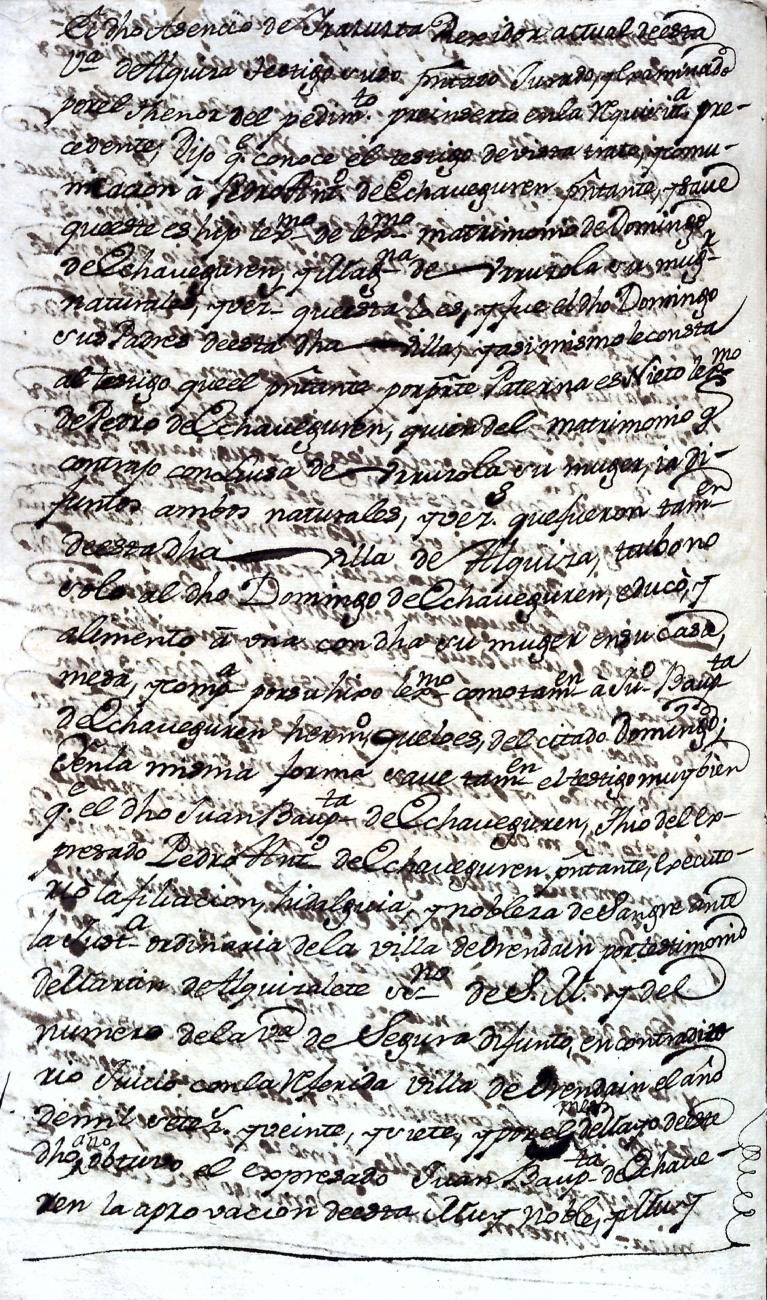 El dho Asencio de Irazusta Rexidor actual de esta
Va de Alquiza testigo suso pñtado Jurado, y examinado
por el thenor del pedimto preinserto en la Requisita pre-
cedente, Dijo qe conoce el testigo de vista trato, y comu-
nicacion â Pedro Anto de Echaveguren pñtante, y save
que este es hijo lexmo de lexmo matrimonio de Domingo
de Echaveguren, y de Urruzola su mugr
naturales, y vez. que esta lo es, y fue el dho Domingo
sus Padres de esta dha villa; y asi mismo le consta
al testigo que el pñtante por pte Paterna es Nieto lexmo
de Pedro de Echaveguren, quien del matrimonio qe
contrajo con Luisa de Urruzola su muger, ia di-
funtos ambos naturales, y vezs. que fueron tamen
de esta dha villa de Alquiza, tubo no
solo al dho Domingo de Echaveguren, educò, y
alimentò â una con dha su muger en su Casa,
mesa, y compa por su hixo lexmo como tamen â Juo Baupta
de Echaveguren hermo, que lo es, del citado Domingo;
En la misma forma save tamen el testigo muy bien
qe el dho Juan Baupta de Echaveguren, thio del ex-
presado Pedro Anto de Echaveguren pñtante, executo-
riò la filiacion, hidalguia, y nobleza de Sangre ante
la Justa ordinaria de la villa de Orendain por testimonio
de Martin de Alquizalete ssno de S. M. y del
numero de la va de Segura difunto, en contradicto
rio Juicio con la Referida villa de Orendain el año
de mil setez. y veinte, y siete, y por el mes de Mayo de este
dho año obtuvo el expresado Juan Baupta de Echave-
ren la aprovacion de esta Muy Noble, y Muy